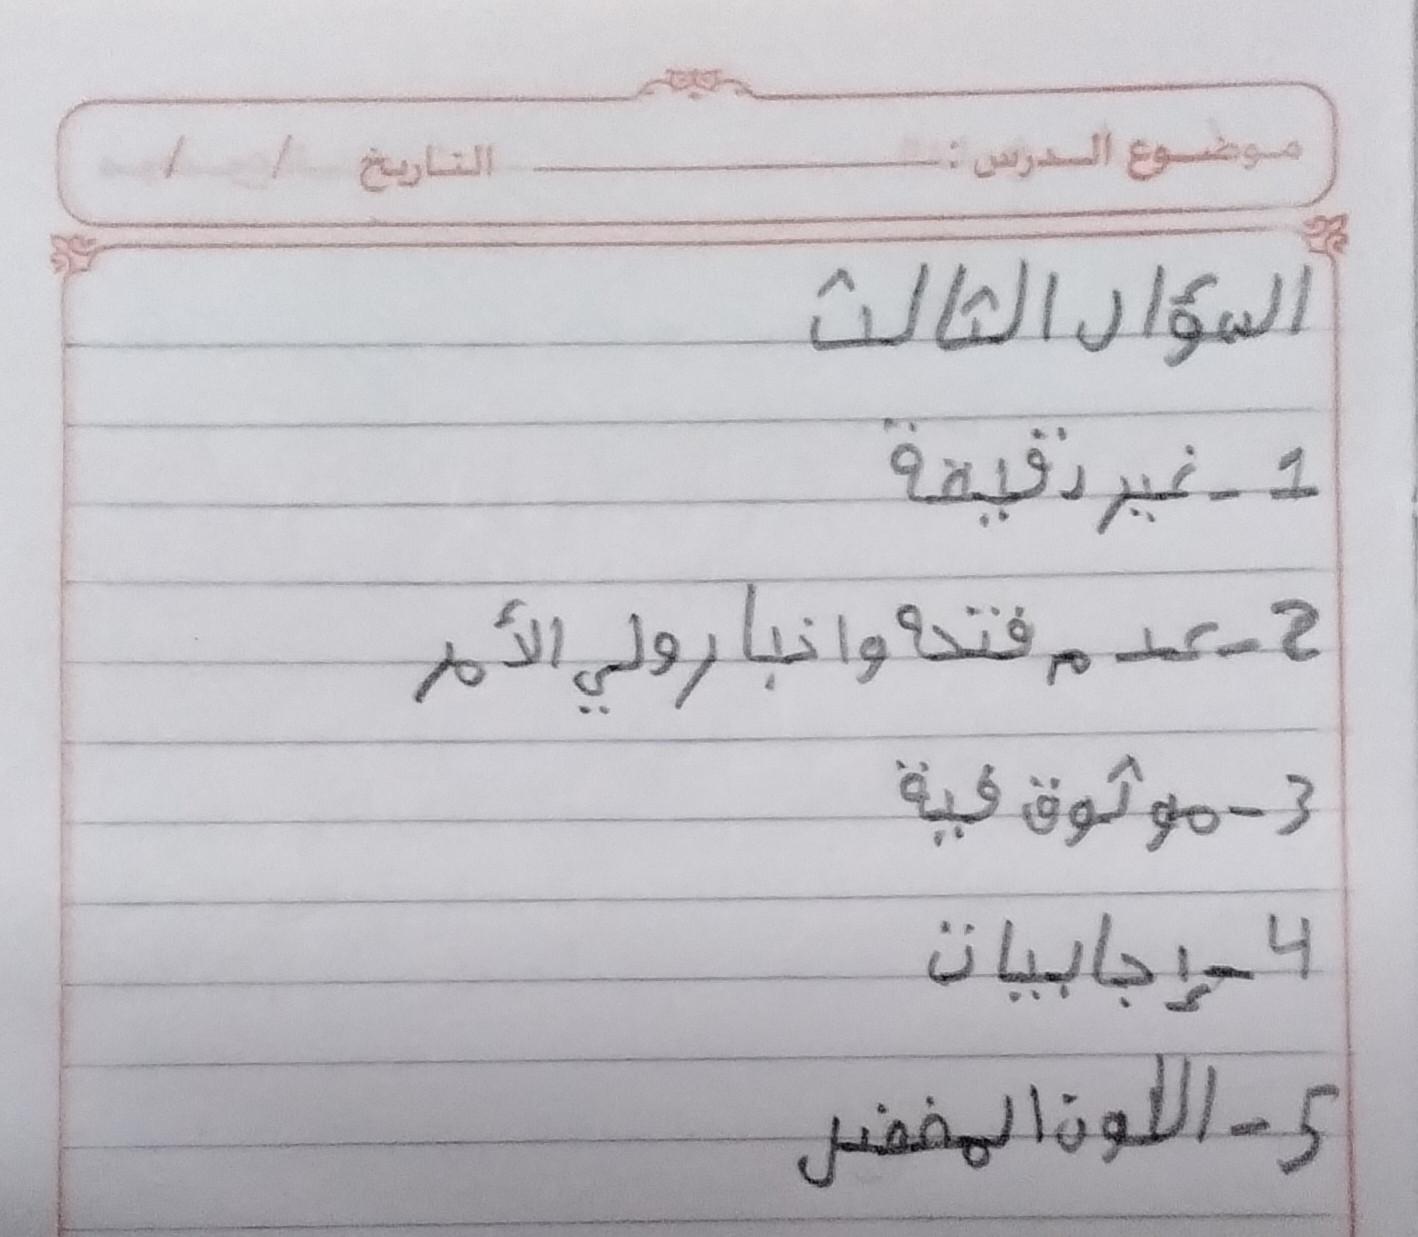 موضوع الدرس : التاريخ / /
السؤال الثالث
1 - غير دقيقة
2 - عدم فتحه واخبار ولي الأمر
3 - موثوق فية
4 - إجابيات
5 - اللون المفضل